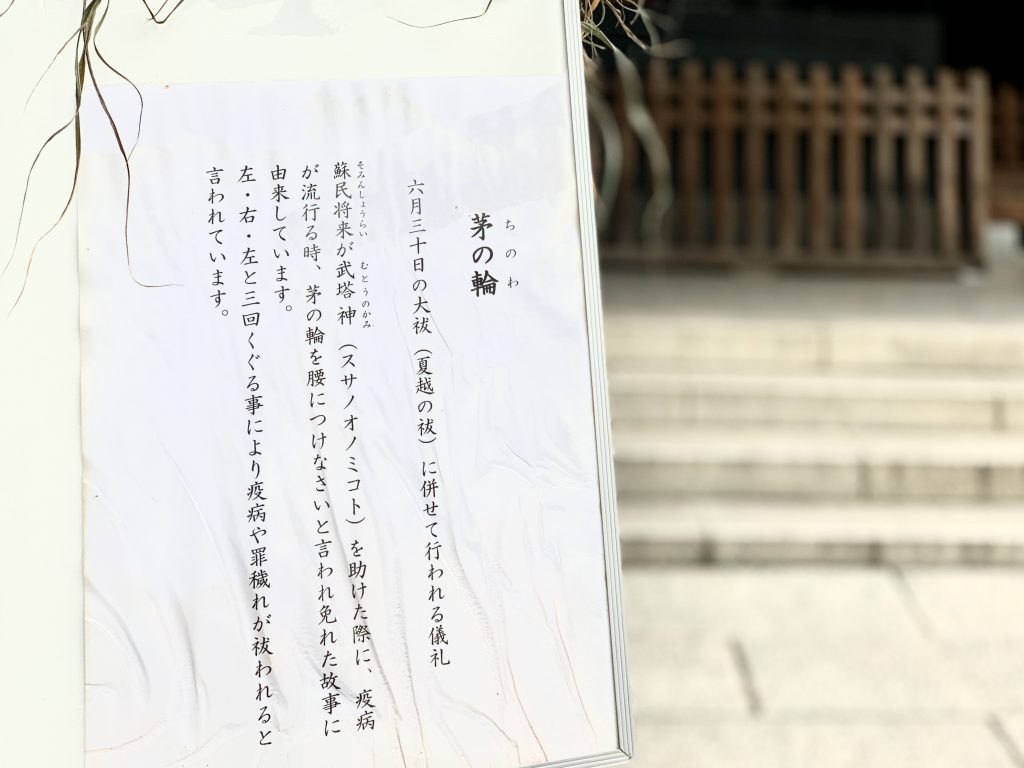 茅の輪
ちのわ
六月三十日の大祓（夏越の祓）に併せて行われる儀礼
蘇民将来が武塔神（スサノオノミコト）を助けた際に、疫病
そみんしょうらい　むとうのかみ
が流行る時、茅の輪を腰につけなさいと言われ免れた故事に
由来しています。
左・右・左と三回くぐる事により疫病や罪穢れが祓われると
言われています。